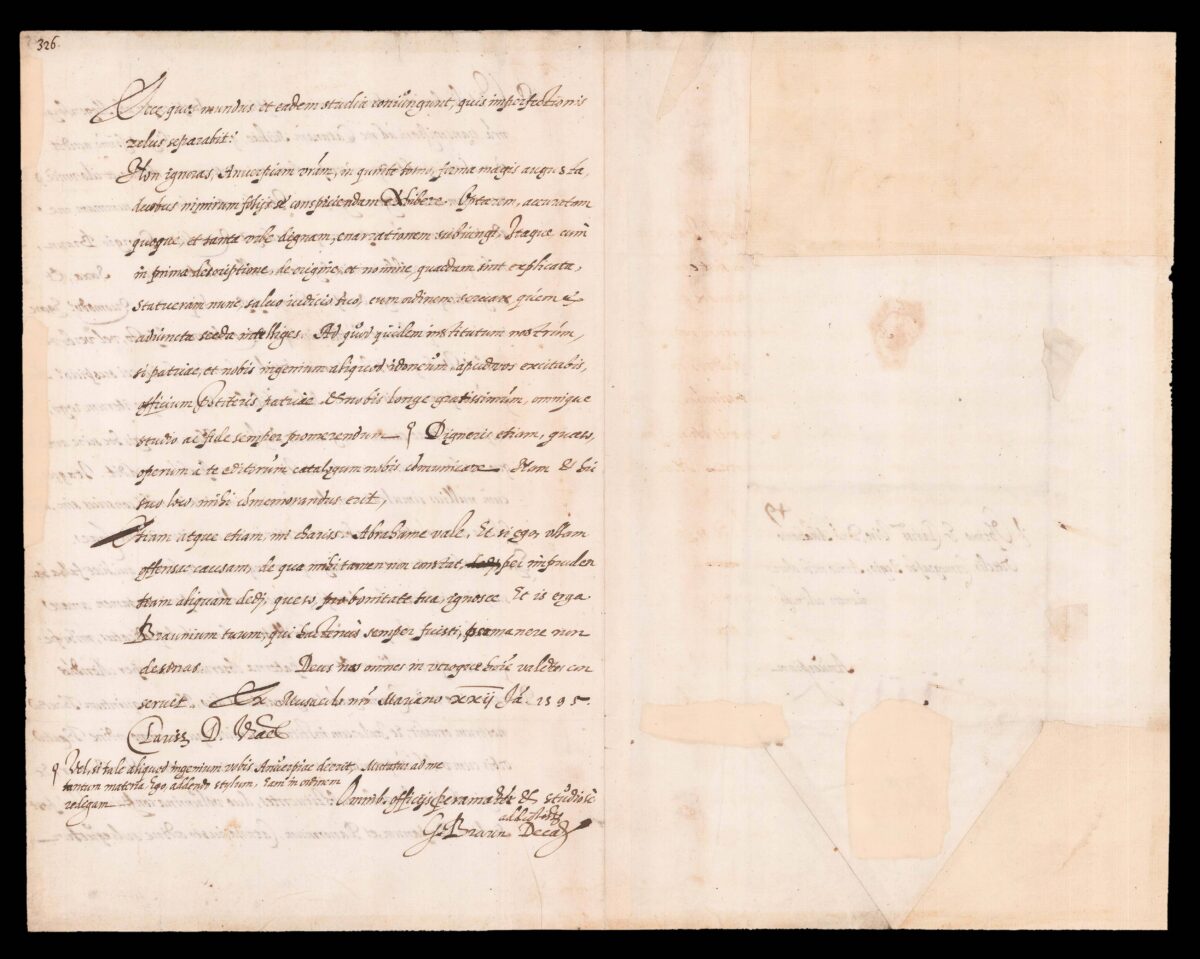 326.
Ecce, quos mundus et eadem studia coniungunt, quis imperfectionis
zelus separabit?
Non ignoras, Anuerpiam vr̃am, in quinto tomo, forma magis augusta,
duobus nimirum folijs se conspiciendam exhibere. Optarem, accuratam
quoque, et tanta vrbe dignam, enarrationem subiungi. Itaque cum
in prima descriptione, de origine, et nomine, quaedam sint explicata,
statueram nunc, saluo iudicio tuo, eum ordinem seruare quem ex
adiuncta sceda intelliges. Ad quod quidem institutum nostrum,
si patriae, et nobis ingenium aliquod idoneum, apud vos excitabis,
officium praestiteris patriae & nobis longe gratissimum, omnique
studio ac fide semper promerendum Digneris etiam, quaeso,
operum a te editorum catalogum nobis cõmunicare Nam & hic
suo loco, mihi cõmemorandus erit,
Etiam atque etiam, mi chariss. Abrahame vale, Et si ego, vllam
offensae causam, de qua mihi tamen non constat, per impruden
tiam aliquam dedj, queso, pro bonitate tua, ignosce Et is erga
Braunium tuum, qui hactenus semper fuisti, permanere non
desinas Deus nos omnes in vtroque hoĩe valentes con
seruet Ex Musaeolo mõ Mariano xxij Ja. 1595.
D.
Vel, si tale aliquod ingenium vobis Anuerpiae deerit, Mittatur ad me
tantum materia, Ego, addendo stylum, eam in ordinem
redigam
Omnib. officijs & studiose
G. Braun Deca
49